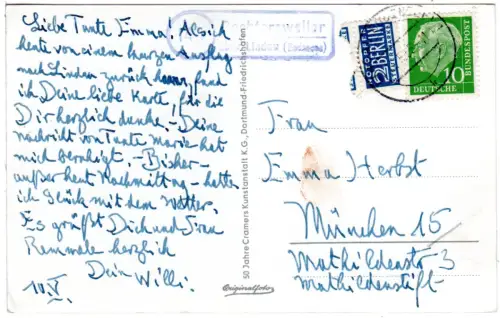 Liebe Tante Emma! Als ich
heute von einem kurzen Ausflug
nach Lindau zurück kam, fand
ich Deine liebe Karte, für die
Dir herzlich danke. – Deine
Nachricht von Tante Marie hat
mich beruhigt. – Bisher –
außer heut Nachmittag – hatte
ich Glück mit dem Wetter.
Es grüßt Dich und Frau
herzlich
Dein Willi.
10.V.
50 Jahre Cramers Kunstanstalt K.G., Dortmund-Friedrichshafen
Originalfoto
Lindau (Bodensee)
NOTOPFER
2 BERLIN
STEUERMARKE
10
DEUTSCHE BUNDESPOST
Frau
Emma Herbst
München 15
Mathildenstr 3
Mathildenstift